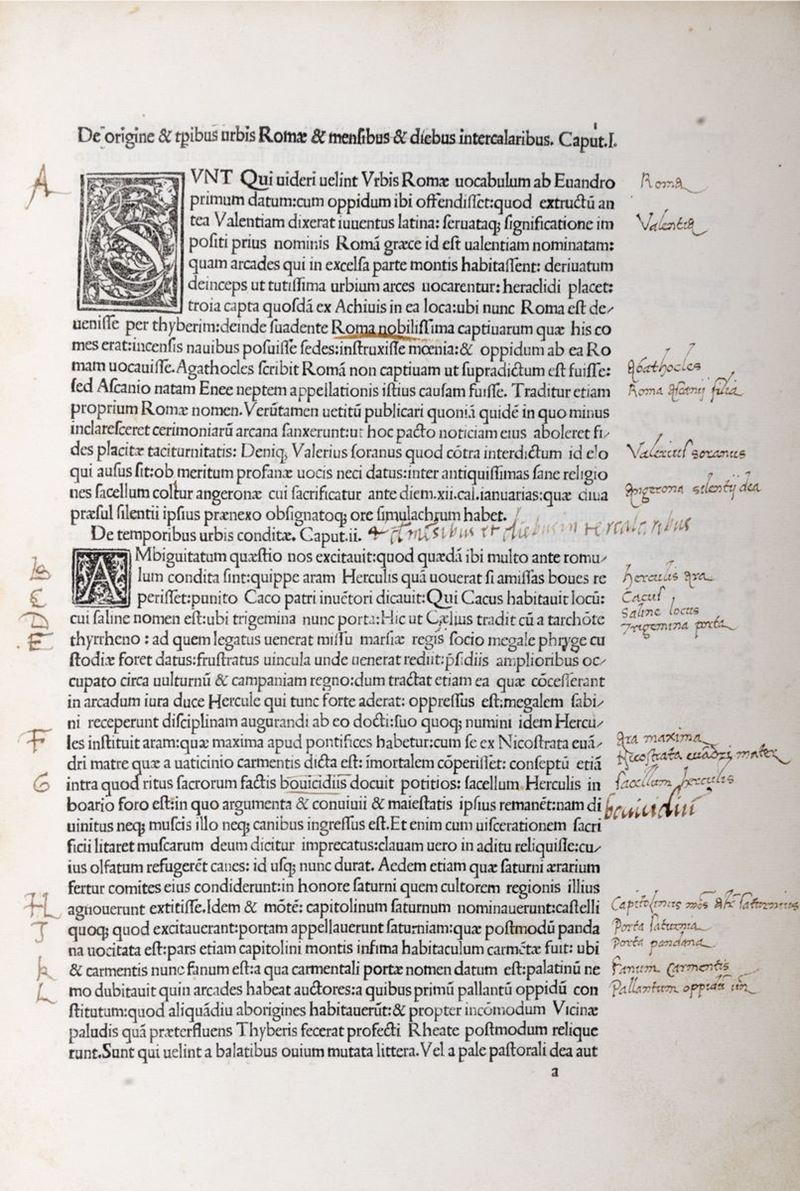 De origine & tp̄ibus urbis Romæ & mensibus & diebus intercalaribus. Caput.I.
A
SVNT Qui uideri uelint Vrbis Romæ uocabulum ab Euandro
Roma
primum datum:cum oppidum ibi offendiſſet:quod extructū an
tea Valentiam dixerat iuuentus latina: ſeruataq; ſignificatione im
Valentia
poſiti prius nominis Romā græce id eſt ualentiam nominatam:
quam arcades qui in excelſa parte montis habitaſſent: deriuatum
deinceps ut tutiſſima urbium arces uocarentur:heraclidi placet:
troia capta quoſdā ex Achiuis in ea loca:ubi nunc Roma eſt de⸗
ueniſſe per thyberim:deinde ſuadente Roma nobiliſſima captiuarum quæ his co
mes erat:incenſis nauibus poſuiſſe ſedes:inſtruxiſſe mœnia:& oppidum ab ea Ro
mam uocauiſſe.Agathocles ſcribit Romā non captiuam ut ſupradictum eſt fuiſſe:
Agathocles
ſed Aſcanio natam Enee neptem appellationis iſtius cauſam fuiſſe. Traditur etiam
Roma Aſcanij filia
proprium Romæ nomen.Verūtamen uetitū publicari quoniā quidē in quo minus
inclareſceret cerimoniarū arcana ſanxerunt:ut hoc pacto noticiam eius aboleret fi⸗
des placitæ taciturnitatis: Deniq; Valerius ſoranus quod cōtra interdictum id elo
Valerius soranus
qui auſus ſit:ob meritum profanæ uocis neci datus:inter antiquiſſimas ſane religio
nes ſacellum colitur angeronæ cui ſacrificatur ante diem.xii.cal.ianuarias:quæ diua
Angerona silentij dea
præſul ſilentii ipſius prænexo obſignatoq; ore ſimulachrum habet.
De temporibus urbis conditæ. Caput.ii.
mēsibus et diebus intercalaribus
AMbiguitatum quæſtio nos excitauit:quod quædā ibi multo ante romu⸗
b
lum condita ſint:quippe aram Herculis quā uouerat ſi amiſſas boues re
Herculis Ara
C
periſſet:punito Caco patri inuētori dicauit:Qui Cacus habitauit locū:
Cacus
D
cui ſaline nomen eſt:ubi trigemina nunc porta:Hic ut Cælius tradit cū a tarchōte
Saline locus
Trigemina porta
E
thyrrheno : ad quem legatus uenerat miſſu marſiæ regis ſocio megale phryge cu
ſtodiæ foret datus:fruſtratus uincula unde uenerat rediit:p̄ſidiis amplioribus oc⸗
cupato circa uulturnū & campaniam regno:dum tractat etiam ea quæ cōceſſerant
in arcadum iura duce Hercule qui tunc forte aderat: oppreſſus eſt:megalem ſabi⸗
ni receperunt diſciplinam augurandi ab eo docti:ſuo quoq; numini idem Hercu⸗
F
les inſtituit aram:quæ maxima apud pontifices habetur:cum ſe ex Nicoſtrata euā⸗
Ara maxima
dri matre quæ a uaticinio carmentis dicta eſt: īmortalem cōperiſſet: conſeptū etiā
Nicostrata euādri mater
G
intra quod ritus ſacrorum factis bouicidiis docuit potitios: ſacellum Herculis in
sacellum herculis
boario foro eſt:in quo argumenta & conuiuii & maieſtatis ipſius remanēt:nam di
bouicidiū
uinitus neq; muſcis illo neq; canibus ingreſſus eſt.Et enim cum uiſcerationem ſacri
ficii litaret muſcarum deum dicitur imprecatus:clauam uero in aditu reliquiſſe:cu⸗
ius olfatum refugerēt canes: id uſq; nunc durat. Aedem etiam quæ ſaturni ærarium
fertur comites eius condiderunt:in honore ſaturni quem cultorem regionis illius
H
agnouerunt extitiſſe.Idem & mōtē: capitolinum ſaturnum nominauerunt:caſtelli
Capitolinus mōs Ante Saturnius
I
quoq; quod excitauerant:portam appellauerunt ſaturniam:quæ poſtmodū panda
Porta saturnia
na uocitata eſt:pars etiam capitolini montis infima habitaculum carmētæ fuit: ubi
Porta pandana
k
& carmentis nunc fanum eſt:a qua carmentali portæ nomen datum eſt:palatinū ne
Fanum Carmentis
L
mo dubitauit quin arcades habeat auctores:a quibus primū pallantū oppidū con
Pallantum oppidū
ſtitutum:quod aliquādiu aborigines habitauerūt:& propter incōmodum Vicinæ
paludis quā præterfluens Thyberis fecerat profecti Rheate poſtmodum relique
runt.Sunt qui uelint a balatibus ouium mutata littera.Vel a pale paſtorali dea aut
a